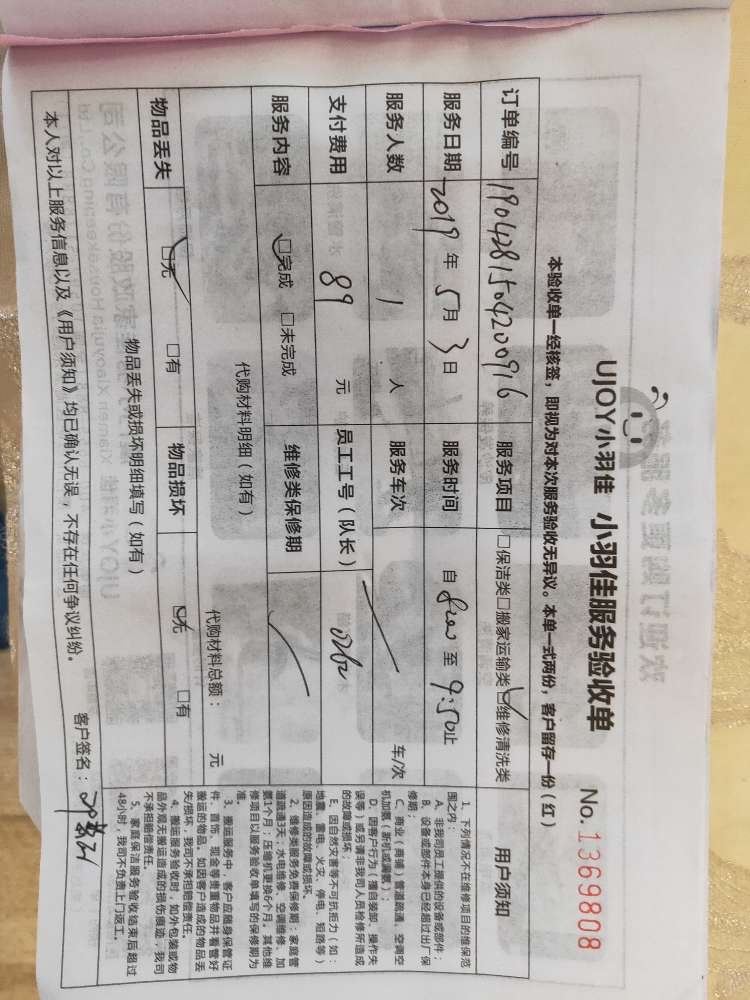 UJOY小羽佳 小羽佳服务验收单
No. 1369808
本验收单一经核签，即视为对本次服务验收无异议。本单一式两份，客户留存一份（红）
订单编号 1904281504200916 服务项目 □保洁类□搬家运输类☑维修清洗类
服务日期 2019 年 5 月 3 日 服务时间 自 8:00 至 9:50 止
服务人数 1 人 服务车次 车/次
支付费用 89 元 员工工号（队长）
服务内容 ☑完成 □未完成 维修类保修期
代购材料明细（如有）
代购材料总额： 元
物品丢失 ☑无 □有 物品损坏 ☑无 □有
物品丢失或损坏明细填写（如有）
本人对以上服务信息以及《用户须知》均已确认无误，不存在任何争议纠纷。
客户签名：
用户须知
1、下列情况不在维修项目的维保范
围之内：
A、非我司员工提供的设备或部件；
B、设备或部件本身已经超过出厂保
修期；
C、商业（商铺）管道疏通、空调空
机加氟（新机或漏氟）；
D、因客户行为（擅自装卸、操作失
误等）或另请非我司人员检修所造成
的故障或损坏；
E、因自然灾害等不可抗拒力（如：
地震、雷电、火灾、停电、短路等）
原因造成的故障或损坏。
2、维修类服务免费保修期：家庭管
道疏通3天；水电维修、空调维修、加
氟1个月；压缩机更换6个月，其他维
修项目以服务验收单填写的保修期为
准。
3、搬运服务中，客户应随身保管证
件、首饰、现金等贵重物品并看管好
搬运的物品。如因客户造成的物品丢
失/损坏，我司不承担赔偿责任。
4、搬运服务验收时，如外包装或物
品外观无搬运造成的损伤痕迹，我司
不承担赔偿责任。
5、家庭保洁服务验收结束后超过
48小时，我司不负责上门返工。